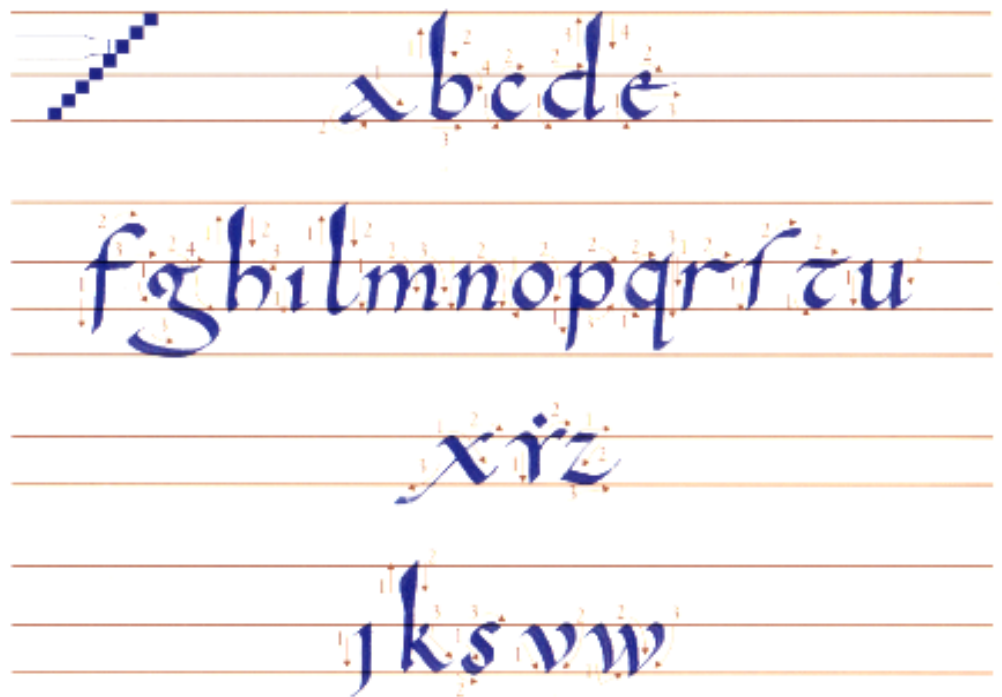 a b c d e
f g h ı l m n o p q r ſ τ u
x ẏ z
ȷ k s v w